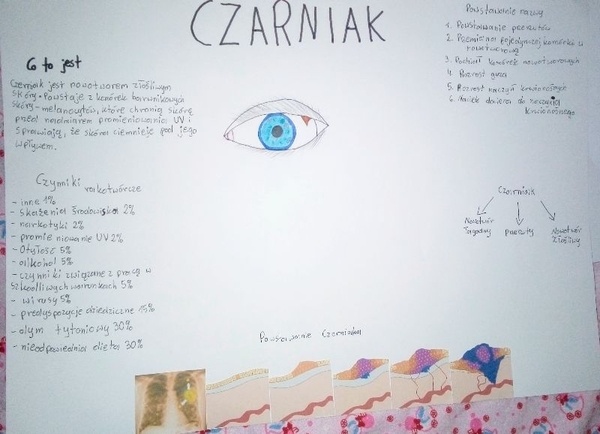 CZARNIAK
Co to jest
Czerniak jest nowotworem złośliwym
skóry. Powstaje z komórek barwnikowych
skóry - melanocytów, które chronią skórę
przed nadmiarem promieniowania UV i
sprawiają, że skóra ciemnieje pod jego
wpływem.
Czynniki
rakotwórcze
- inne 1%
- skażenia środowiska 2%
- narkotyki 2%
- promieniowanie UV 2%
- Otyłość 5%
- alkohol 5%
- czynniki związane z pracą w
szkodliwych warunkach 5%
- wirusy 5%
- predyspozycje dziedziczne 15%
- dym tytoniowy 30%
- nieodpowiednia dieta 30%
Powstawanie
1. Powstawanie
2. Przemiana pojedynczej komórki w
nowotworową
3. Podział komórek nowotworowych
4. Rozrost guza
5. Rozrost naczyń krwionośnych
6. dociera do naczynia
krwionośnego
Czarniak
Nowotwór
łagodny
pieprzyk
Nowotwór
złośliwy
Powstawanie Czerniaka